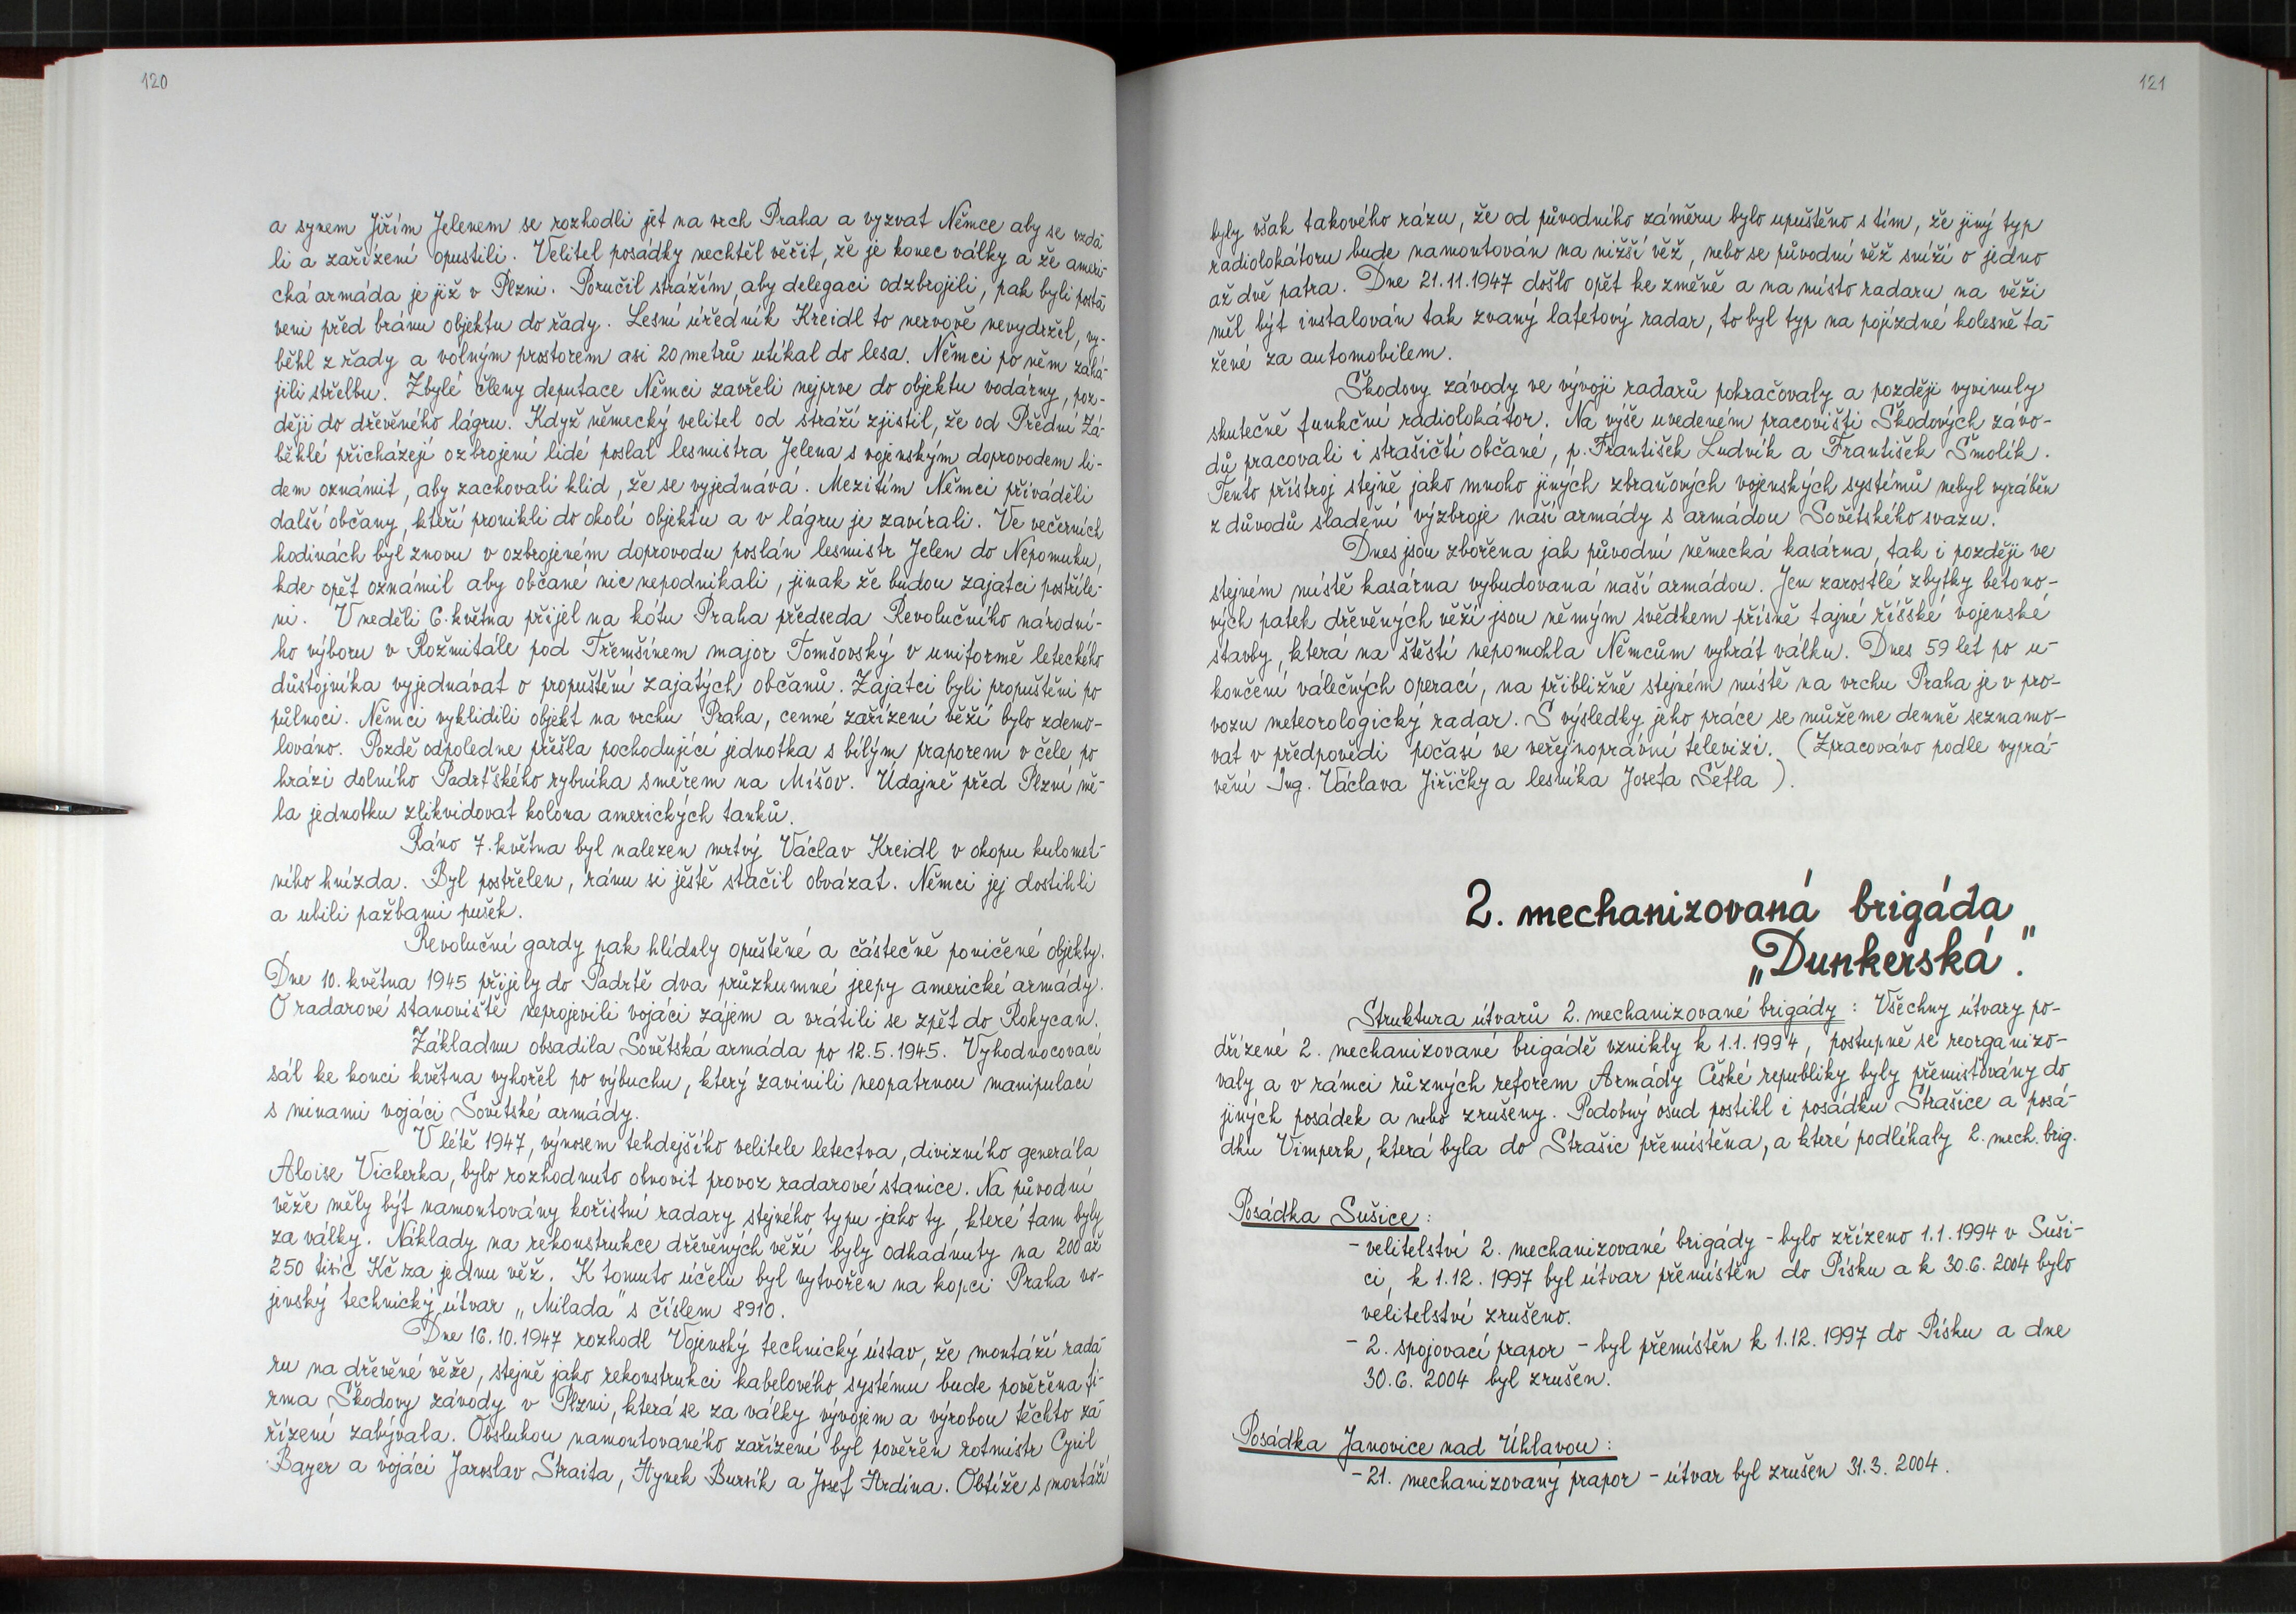 120
a synem Jiřím Jelenem se rozhodli jet na vrch Praha a vyzvat Němce aby se vzdá-
li a zařízení opustili. Velitel posádky nechtěl věřit, že je konec války a že ameri-
cká armáda je již v Plzni. Poručil strážím, aby delegaci odzbrojili, pak byli posta-
veni před bránu objektu do řady. Lesní úředník Kreidl to nervově nevydržel, vy-
běhl z řady a volným prostorem asi 20 metrů utíkal do lesa. Němci po něm zahá-
jili střelbu. Zbylé členy deputace Němci zavřeli nejprve do objektu vodárny, poz-
ději do dřevěného lágru. Když německý velitel od stráží zjistil, že od Přední Zá-
běhlé přicházejí ozbrojení lidé poslal lesmistra Jelena s vojenským doprovodem li-
dem oznámit, aby zachovali klid, že se vyjednává. Mezitím Němci přiváděli
další občany, kteří pronikli do okolí objektu a v lágru je zavírali. Ve večerních
hodinách byl znovu v ozbrojeném doprovodu poslán lesmistr Jelen do Nepomuku,
kde opět oznámil aby občané nic nepodnikali, jinak že budou zajatci postříle-
ni. V neděli 6. května přijel na kótu Praha předseda Revolučního národní-
ho výboru v Rožmitále pod Třemšínem major Tomšovský v uniformě leteckého
důstojníka vyjednávat o propuštění zajatých občanů. Zajatci byli propuštěni po
půlnoci. Němci vyklidili objekt na vrchu Praha, cenné zařízení věží bylo zdemo-
lováno. Pozdě odpoledne přišla pochodující jednotka s bílým praporem v čele po
hrázi dolního Padrťského rybníka směrem na Míšov. Údajně před Plzní mě-
la jednotku zlikvidovat kolona amerických tanků.
Ráno 7. května byl nalezen mrtvý Václav Kreidl v okopu kulomet-
ného hnízda. Byl postřelen, ránu si ještě stačil obvázat. Němci jej dostihli
a ubili pažbami pušek.
Revoluční gardy pak hlídaly opuštěné a částečně poničené objekty.
Dne 10. května 1945 přijely do Padrtě dva průzkumné jeepy americké armády.
O radarové stanoviště neprojevili vojáci zájem a vrátili se zpět do Rokycan.
Základnu obsadila Sovětská armáda po 12.5.1945. Vyhodnocovací
sál ke konci května vyhořel po výbuchu, který zavinili neopatrnou manipulací
s minami vojáci Sovětské armády.
V létě 1947, výnosem tehdejšího velitele letectva, divizního generála
Aloise Vicherka, bylo rozhodnuto obnovit provoz radarové stanice. Na původní
věže měly být namontovány kořistní radary stejného typu jako ty, které tam byly
za války. Náklady na rekonstrukce dřevěných věží byly odhadnuty na 200 až
250 tisíc Kč za jednu věž. K tomuto účelu byl vytvořen na kopci Praha vo-
jenský technický útvar „Milada" s číslem 8910.
Dne 16.10.1947 rozhodl Vojenský technický ústav, že montáží radá
ru na dřevěné věže, stejně jako rekonstrukcí kabelového systému bude pověřena fi-
rma Škodovy závody v Plzni, která se za války vývojem a výrobou těchto za-
řízení zabývala. Obsluhou namontovaného zařízení byl pověřen rotmistr Cyril
Bayer a vojáci Jaroslav Straita, Hynek Bursík a Josef Hrdina. Obtíže s montáží
121
byly však takového rázu, že od původního záměru bylo upuštěno s tím, že jiný typ
radiolokátoru bude namontován na nižší věž, nebo se původní věž sníží o jedno
až dvě patra. Dne 21.11.1947 došlo opět ke změně a na místo radaru na věži
měl být instalován tak zvaný lafetový radar, to byl typ na pojízdné kolesně ta-
žené za automobilem.
Škodovy závody ve vývoji radarů pokračovaly a později vyvinuly
skutečně funkční radiolokátor. Na výše uvedeném pracovišti Škodových závo-
dů pracovali i strašičtí občané, p. František Ludvík a František Smolík.
Tento přístroj stejně jako mnoho jiných zbraňových vojenských systémů nebyl vyráběn
z důvodů sladění výzbroje naší armády s armádou Sovětského svazu.
Dnes jsou zbořena jak původní německá kasárna, tak i později ve
stejném místě kasárna vybudovaná naší armádou. Jen zarostlé zbytky betono-
vých patek dřevěných věží jsou němým svědkem přísně tajné říšské vojenské
stavby, která na štěstí nepomohla Němcům vyhrát válku. Dnes 59 let po u-
končení válečných operací, na přibližně stejném místě na vrchu Praha je v pro-
vozu meteorologický radar. S výsledky jeho práce se můžeme denně seznamo-
vat v předpovědi počasí ve veřejnoprávní televizi. (Zpracováno podle vyprá-
vění Ing. Václava Jiřičky a lesníka Josefa Šefla).
2. mechanizovaná brigáda
„Dunkerská".
Struktura útvarů 2. mechanizované brigády: Všechny útvary po-
dřízené 2. mechanizované brigádě vznikly k 1.1. 1994, postupně se reorganizo-
valy a v rámci různých reforem Armády České republiky byly přemisťovány do
jiných posádek a nebo zrušeny. Podobný osud postihl i posádku Strašice a posá-
dku Vimperk, která byla do Strašic přemístěna, a které podléhaly 2. mech. brig.
Posádka Sušice:
- velitelství 2. mechanizované brigády - bylo zřízeno 1.1. 1994 v Suši-
ci, k 1.12. 1997 byl útvar přemístěn do Písku a k 30.6. 2004 bylo
velitelství zrušeno.
- 2. spojovací prapor - byl přemístěn k 1.12. 1997 do Písku a dne
30.6. 2004 byl zrušen.
Posádka Janovice nad Úhlavou:
- 21. mechanizovaný prapor - útvar byl zrušen 31.3. 2004.